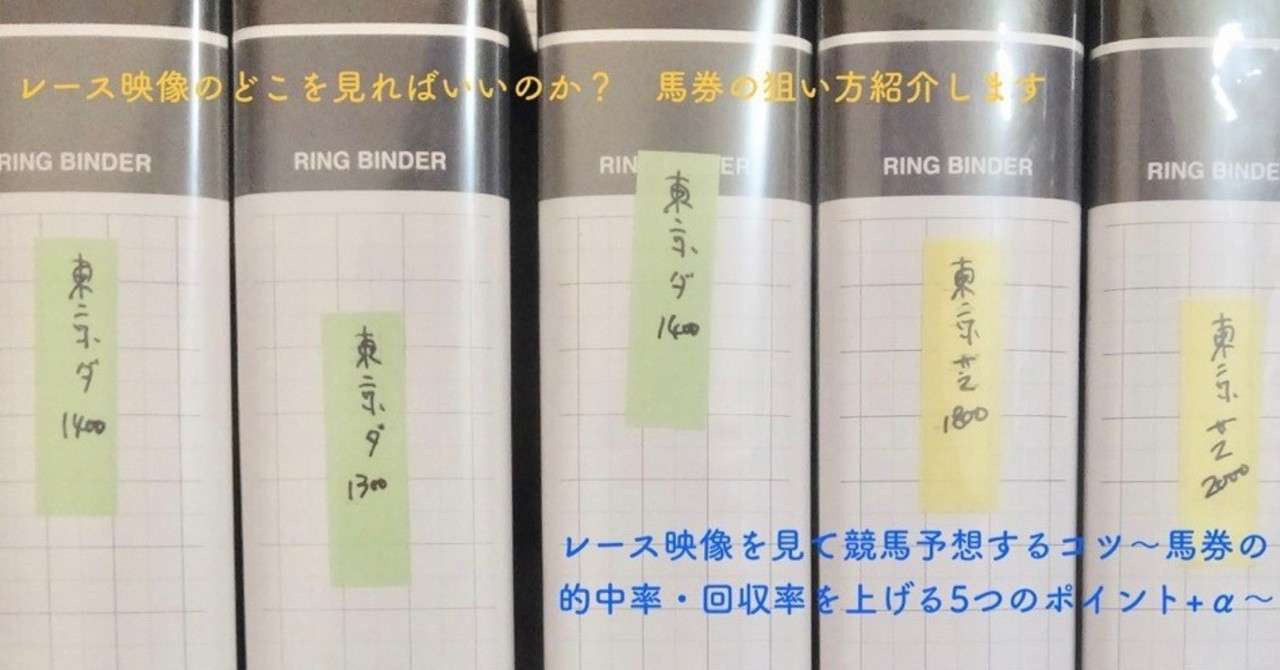 レース映像のどこを見ればいいのか？　馬券の狙い方紹介します
RING BINDER
RING BINDER
RING BINDER
RING BINDER
東京ダ
1400
東京ダ
1300
東京ダ
1400
東京芝
1800
東京芝
2000
レース映像を見て競馬予想するコツ〜馬券の
的中率・回収率を上げる5つのポイント+α〜